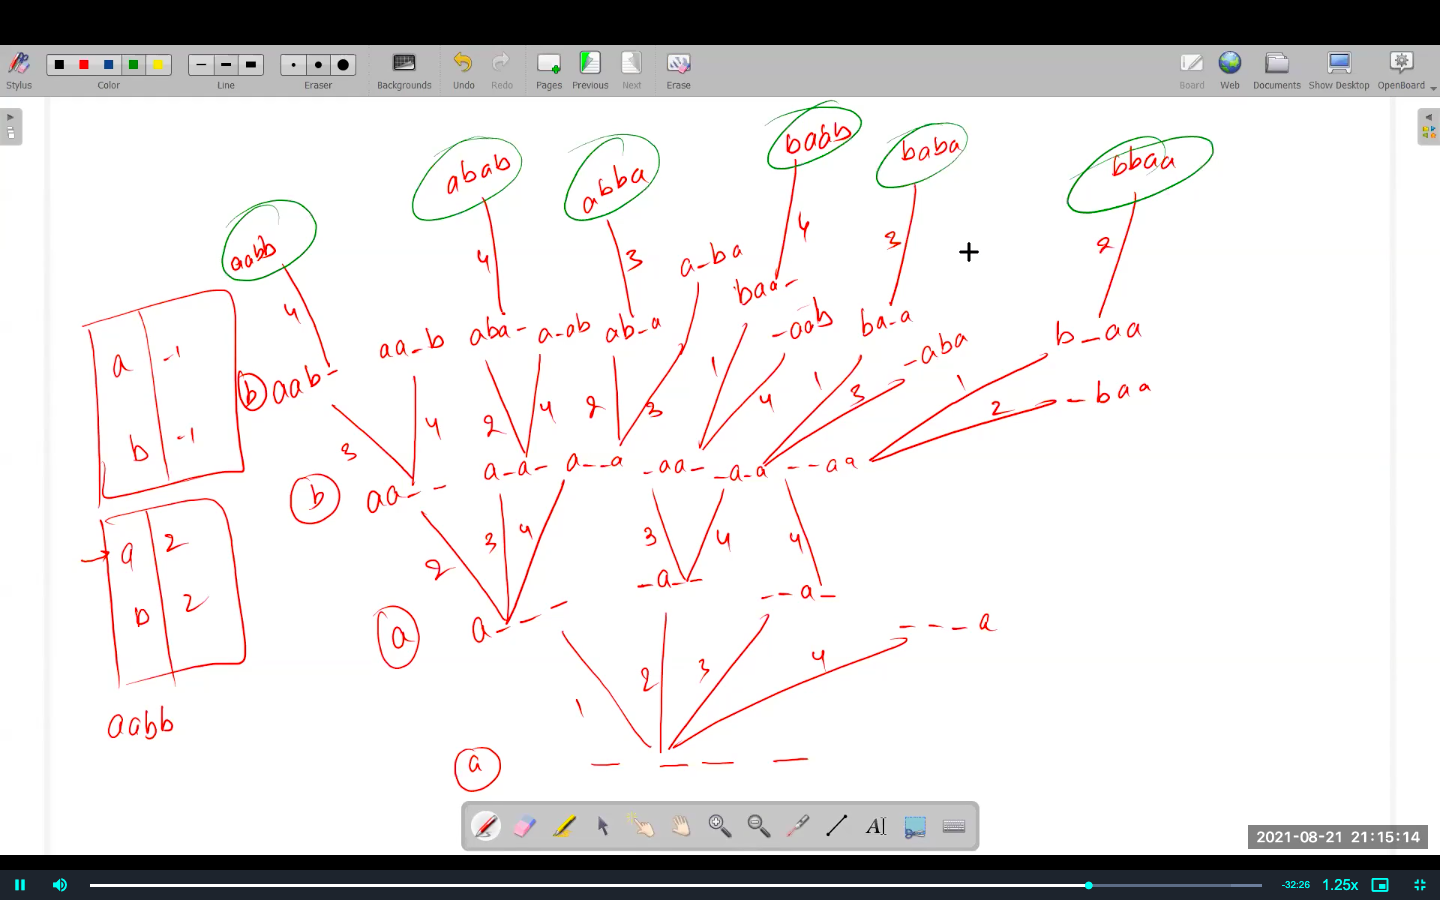 Stylus Color Line Eraser Backgrounds Undo Redo Pages Previous Next Erase Board Web Documents Show Desktop OpenBoard
aabb abab abba baab baba bbaa
4 4 3 4 3 2
a -1
b -1
b aab- aa_b aba- a-ab ab-a a-ba baa- -aab ba-a -aba b_aa -baa
3 4 2 4 2 3 1 4 1 3 1 2
b aa-- a-a- a--a -aa- -a-a --aa
2 3 4 3 4 4
a 2
b 2
a a--- -a-- --a- ---a
1 2 3 4
aabb
a _ _ _ _
AI
2021-08-21 21:15:14
-32:26 1.25x